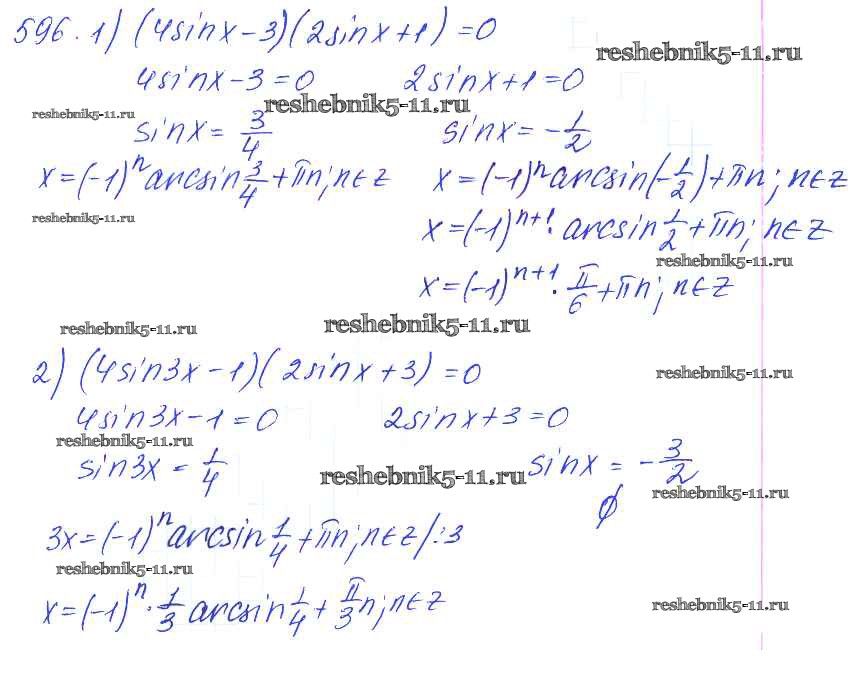 596. 1) (4sinx-3)(2sinx+1)=0
reshebnik5-11.ru
4sinx-3=0 2sinx+1=0
reshebnik5-11.ru reshebnik5-11.ru
sinx= 3/4 sinx=-1/2
x=(-1)^n arcsin 3/4 +πn; n∈Z x=(-1)^n arcsin(-1/2)+πn; n∈Z
reshebnik5-11.ru x=(-1)^{n+1}· arcsin 1/2 +πn; n∈Z
reshebnik5-11.ru
x=(-1)^{n+1}· π/6 +πn; n∈Z
reshebnik5-11.ru reshebnik5-11.ru
2) (4sin3x-1)(2sinx+3)=0
reshebnik5-11.ru
4sin3x-1=0 2sinx+3=0
reshebnik5-11.ru
sin3x = 1/4 reshebnik5-11.ru sinx = -3/2
∅ reshebnik5-11.ru
3x=(-1)^n arcsin 1/4 +πn; n∈Z /:3
reshebnik5-11.ru
x=(-1)^n· 1/3 arcsin 1/4 + π/3 n; n∈Z reshebnik5-11.ru